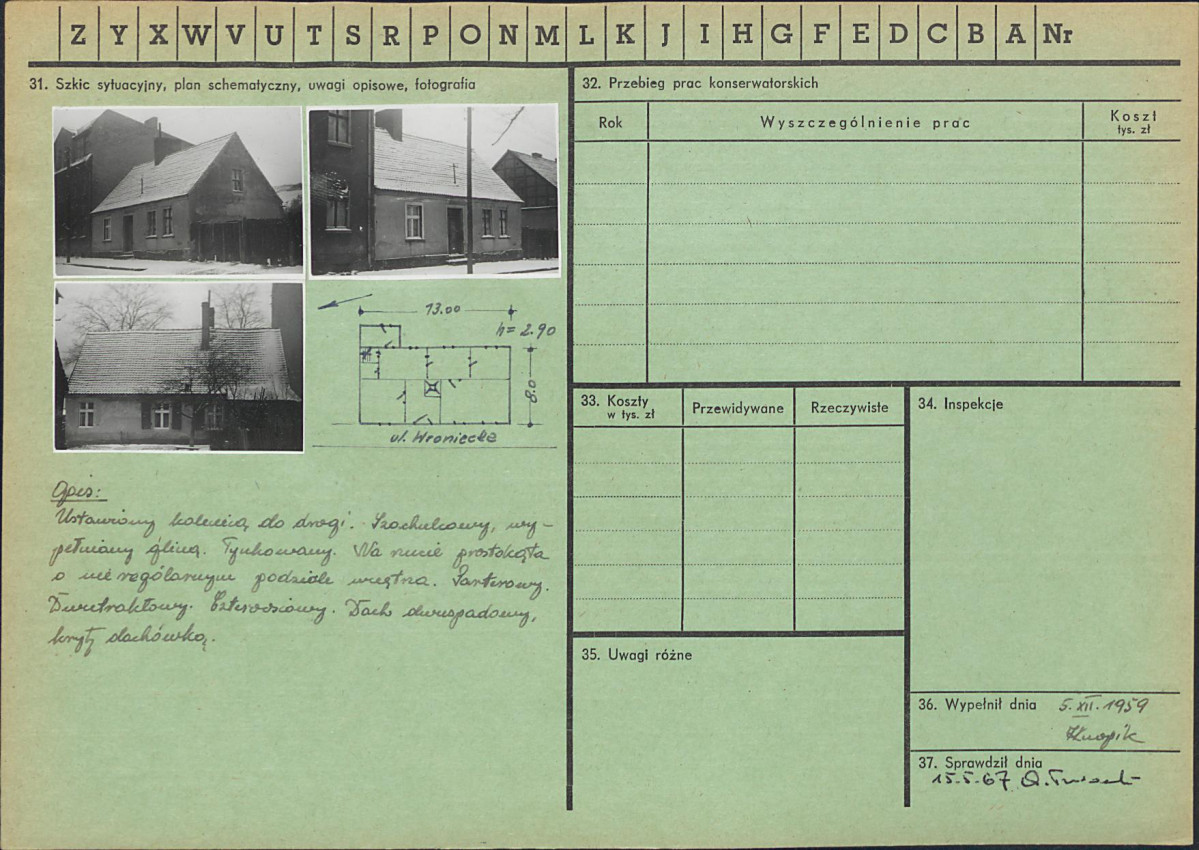 Z Y X W V U T S R P O N M L K J I H G F E D C B A Nr
31. Szkic sytuacyjny, plan schematyczny, uwagi opisowe, fotografia
13.00
h= 2.90
8.0
ul. Wroniecka
Opis:
Ustawiony kalenicą do drogi. Szachulcowy, wy-
pełniany gliną. Tynkowany. Na rzucie prostokąta
o nieregularnym podziale wnętrza. Parterowy.
Dwutraktowy. Czteroosiowy. Dach dwuspadowy,
kryty dachówką.
32. Przebieg prac konserwatorskich
Rok
Wyszczególnienie prac
Koszt
tys. zł
33. Koszty
w tys. zł
Przewidywane
Rzeczywiste
34. Inspekcje
35. Uwagi różne
36. Wypełnił dnia 5.XII.1959
37. Sprawdził dnia
15.5.67